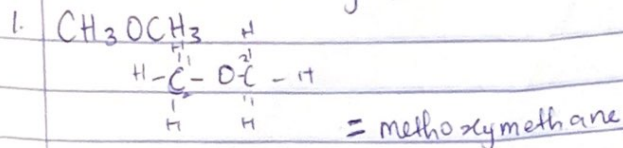 1. CH3 OCH3
H
H 1 2
H - C - OC - H
H H
= methoxymethane